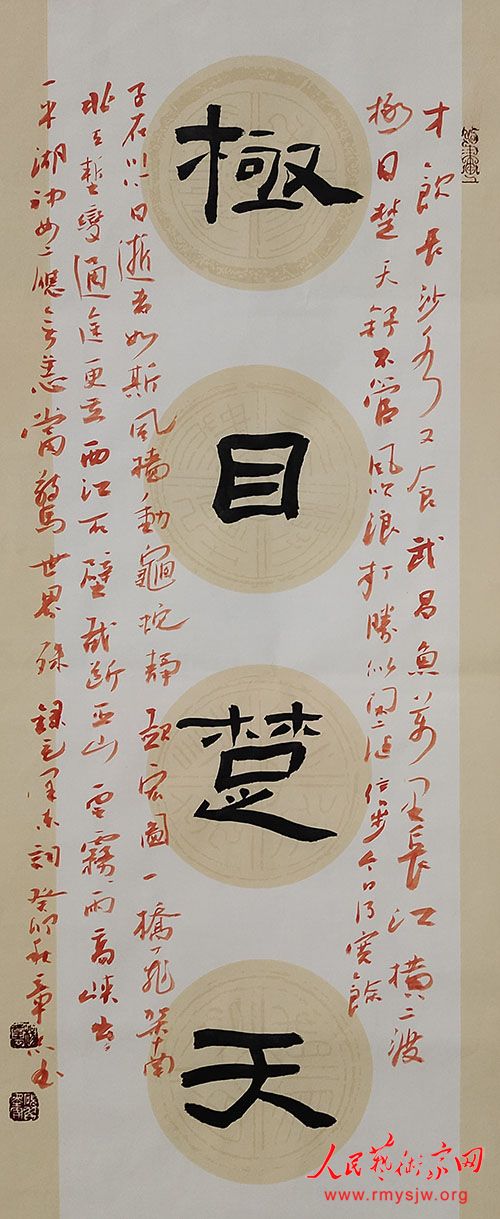 極目楚天
才飲長沙水又食武昌魚萬里長江橫二渡
極目楚天舒不管風吹浪打勝似閑二庭信步今日得寬餘
子在川上曰逝者如斯風檣動龜蛇靜起宏圖一橋飛架南
北天塹變通途更立西江石壁截斷巫山雲霧雨高峽出
一平湖神女二應無恙當驚世界殊 錄毛澤東詞癸卯秋章书
人民藝術家网
www.rmysjw.org